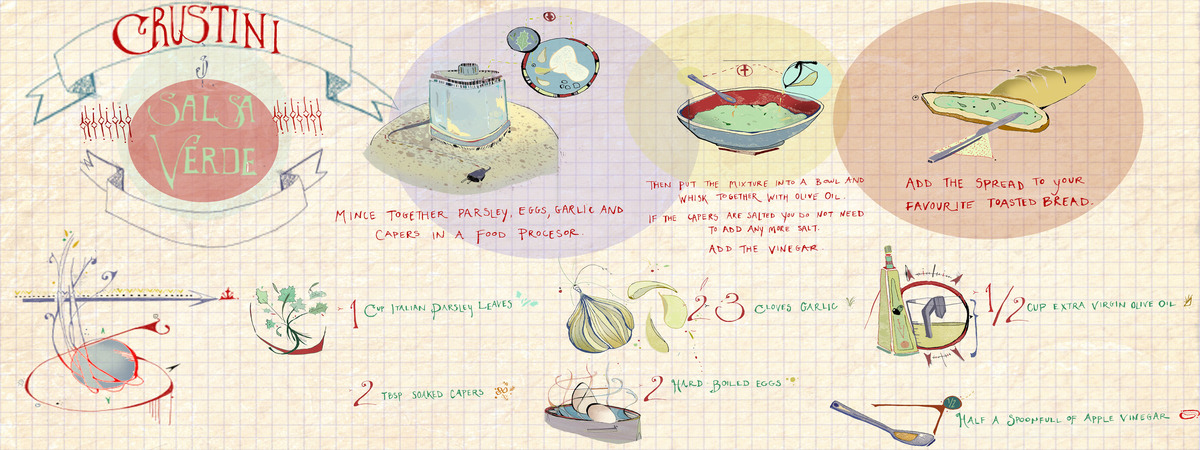 CRUSTINI
SALSA
VERDE
MINCE TOGETHER PARSLEY, EGGS, GARLIC AND
CAPERS IN A FOOD PROCESOR.
THEN PUT THE MIXTURE INTO A BOWL AND
WHISK TOGETHER WITH OLIVE OIL.
IF THE CAPERS ARE SALTED YOU DO NOT NEED
TO ADD ANY MORE SALT.
ADD THE VINEGAR.
ADD THE SPREAD TO YOUR
FAVOURITE TOASTED BREAD.
1 CUP ITALIAN PARSLEY LEAVES
2-3 CLOVES GARLIC
1/2 CUP EXTRA VIRGIN OLIVE OIL
2 TBSP SOAKED CAPERS
2 HARD BOILED EGGS
HALF A SPOONFULL OF APPLE VINEGAR